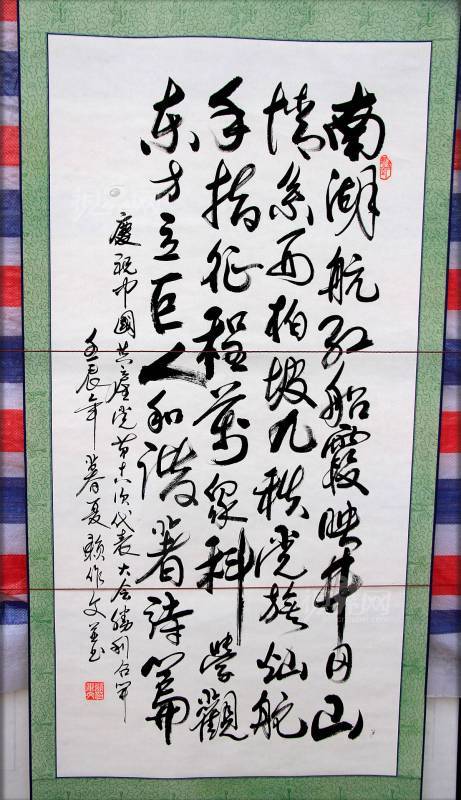 南湖航红船霞映井冈山
情系西柏坡九秩党旗灿舵
手指征程萬眾科學觀
东方立巨人和谐著诗篇
慶祝中國共產党第十八次代表大会勝利召开
壬辰年暮夏赖作文並书